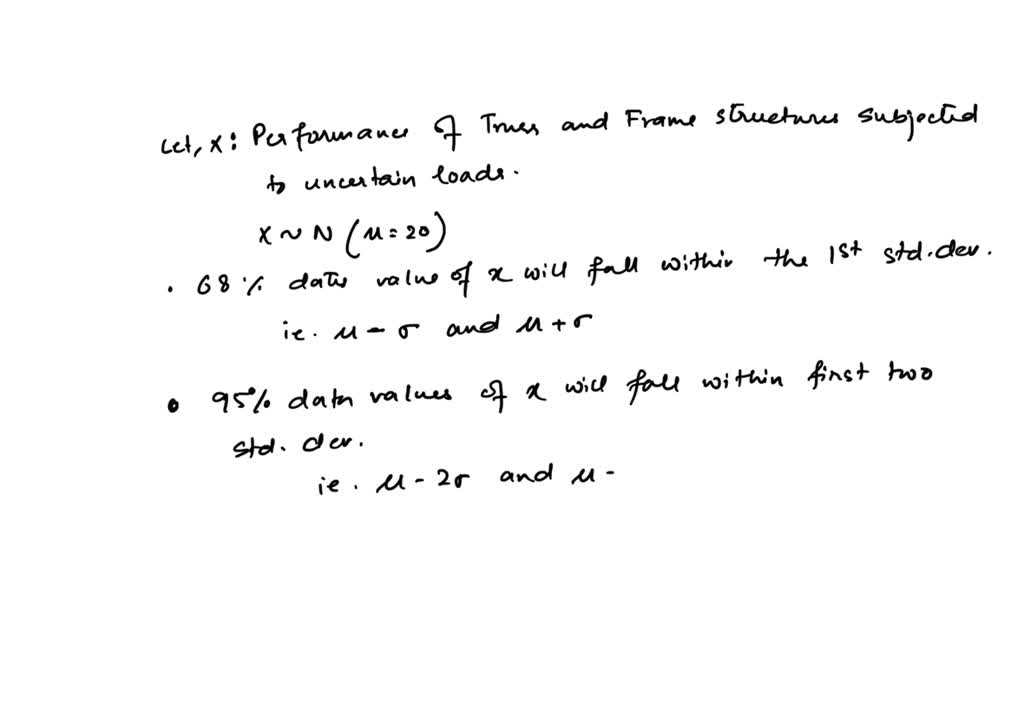 Let, X: Performance of Truss and Frame structures subjected
to uncertain loads.
X ~ N (μ = 20)
• 68 % data value of x will fall within the 1st std.dev.
ie. μ - σ and μ + σ
• 95% data values of x will fall within first two
std. dev.
ie. μ - 2σ and μ -